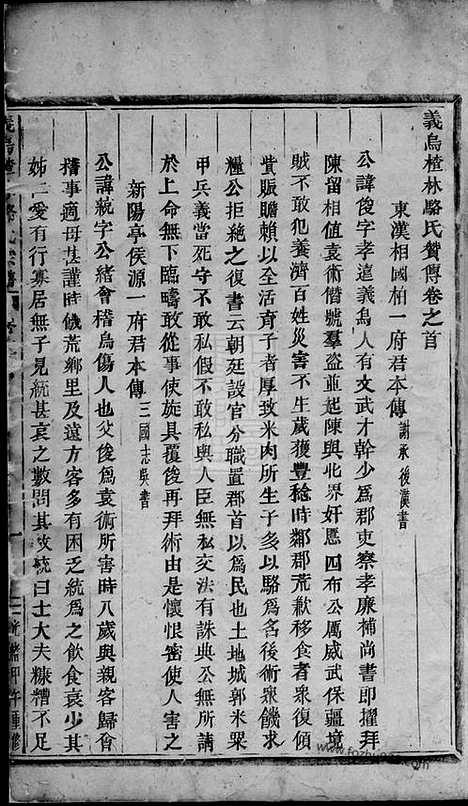 義烏楂林駱氏贊傳卷之首
東漢相國柏一府君本傳 謝承後漢書
公諱俊字孝遠義烏人有文武才幹少爲郡吏察孝廉補尚書郎擢拜
陳留相値袁術僭號羣盜並起陳與北界奸慝四布公厲威武保疆境
賊不敢犯養濟百姓災害不生歲獲豐稔時鄰郡荒歉移食者衆復傾
貲賑贍賴以全活育子者厚致米肉所生子多以駱爲名後術衆饑求
糧公拒絶之復書云朝廷設官分職置郡首以爲民也土地城郭米粟
甲兵義當死守不敢私假不敢私與人臣無私交法有誅典公無所請
於上命無下臨疇敢從事使旋具覆俊再拜術由是懷恨密使人害之
新陽亭侯源一府君本傳 三國志吳書
公諱統字公緖會稽烏傷人也父俊爲袁術所害時八歲與親客歸會
稽事適母甚謹時饑荒鄉里及遠方客多有困乏統爲之飲食衰少其
姊仁愛有行寡居無子見統甚哀之數問其故統曰士大夫糠糟不足
義烏楂
光緒甲午重修